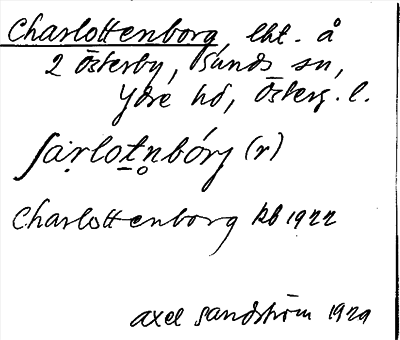 Charlottenborg, lht. å
2 Österby, Sunds sn,
Ydre hd, Österg. l.
ʃạrlot̠n̥bórg (r)
Charlottenborg kb 1922
Axel Sandström 1929